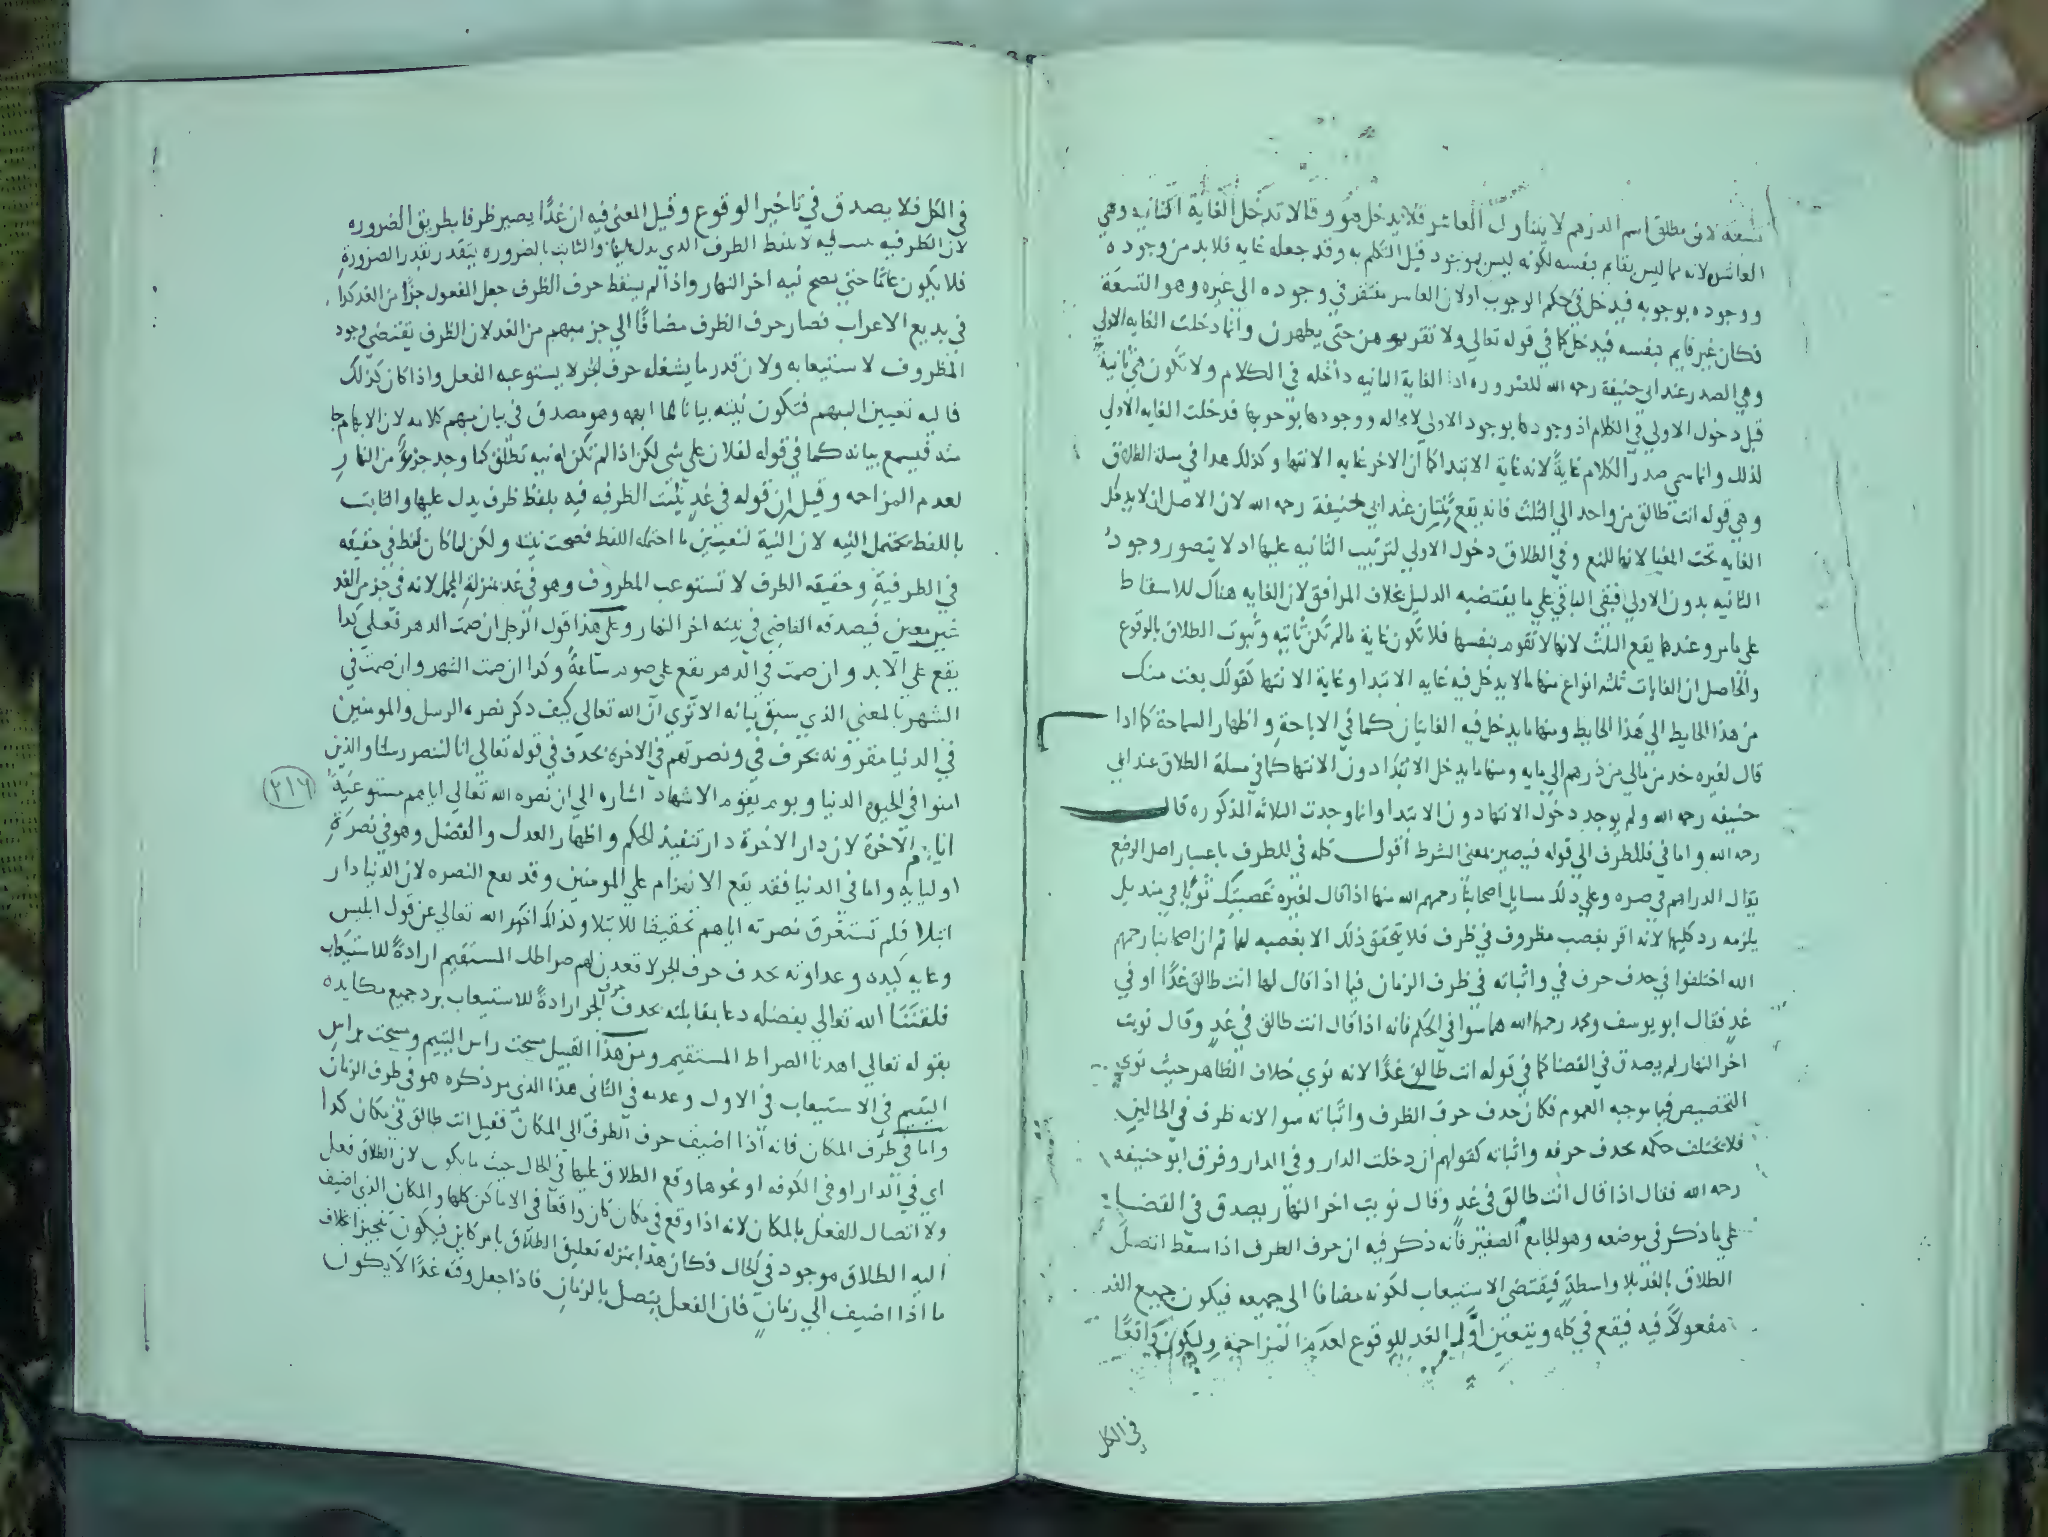 تسعة لان مطلق اسم الدرهم لا يتناول العاشر فلا يدخل هو وقالا تدخل الغاية الثانيه وهي
العاشر لانه مما ليس بقايم بنفسه لكونه ليس بموجود قبل التكلم به وقد جعله غايه فلا بد من وجوده
ووجوده بوجوبه فيدخل في حكم الوجوب اولان العاشر مفتقر في وجوده الى غيره وهو التسعة
فكان غير قايم بنفسه فيدخل كما في قوله تعالى ولا تقربوهن حتى يطهرن وانما دخلت الغايه الاولي
وهي الصدر عند ابي حنيفة رحمه الله للضروره اذ الغاية الثانيه داخله في الكلام ولا تكون هي ثانية
قبل دخول الاولي في الكلام اذ وجودها بوجود الاولي لا محاله ووجودها بوجوبها فدخلت الغايه الاولي
لذلك وانما سمي صدر الكلام غايةً لانه غاية الابتدا كما ان الاخر غايه الانتها وكذلك هذا في مسلة الطلاق
وهي قوله انت طالق من واحد الي الثلث فانه يقع ثنتان عند ابي حنيفة رحمه الله لان الاصل ان لا يدخل
الغايه تحت المغيا لانها للمنع وفي الطلاق دخول الاولي لترتيب الثانيه عليها اذ لا يتصور وجود
الثانيه بدون الاولي فبقي الباقي علي ما يقتضيه الدليل بخلاف المرافق لان الغايه هناك للاسقاط
علي ما مر وعندهما يقع الثلث لانها لا تقوم بنفسها فلا تكون غاية ما لم تكن ثابتيه وثبوت الطلاق بالوقوع
والحاصل ان الغايات ثلثه انواع منها ما لا يدخل فيه غايه الابتدا وغاية الانتها كقولك بعت منك
من هذا الحايط الي هذا الحايط ومنها ما يدخل فيه الغايتان كما في الاباحةِ واظهار السماحة كما اذا
قال لغيره خد من مالي من درهم الي مايه ومنها ما يدخل الابتدا دون الانتها كما في مسلة الطلاق عند ابي
حنيفه رحمه الله ولم يوجد دخول الانتها دون الابتدا وانما وجدت الثلاثه المذكوره قال
رحمه الله واما في فللظرف الي قوله فيصير بمعنى الشرط أقول كلمه في للظرف باعتبار اصل الوضع
يقال الدراهم في صره وعلي ذلك مسايل اصحابنا رحمهم الله منها اذا قال لغيره غصبتك ثوبًا في منديل
يلزمه رد كليهما لانه اقر بغصب مظروف في ظرف فلا يتحقق ذلك الا بغصبه لهما ثم ان اصحابنا رحمهم
الله اختلفوا في حدف حرف في واثباته في ظرف الزمان فيما اذا قال لها انت طالق غدًا او في
غدٍ فقال ابو يوسف ومحمد رحمهما الله هما سوا في الحكم فانه اذا قال انت طالق في غدٍ وقال نويت
اخر النهار لم يصدق في القضا كما في قوله انت طالق غدًا لانه نوي خلاف الظاهر حيث نوي
التخصيص فيما موجبه العموم فكان حدف حرف الظرف واثباته سوا لانه ظرف في الحالين
فلا يختلف حكمه بحدف حرفه واثباته كقولهم ان دخلت الدار وفي الدار وفرق ابو حنيفه
رحمه الله فقال اذا قال انت طالق في غدٍ وقال نويت اخر النهار يصدق في القضا
علي ما ذكر في موضعه وهو الجامع الصغير فانه ذكر فيه ان حرف الظرف اذا سقط اتصل
الطلاق بالغد بلا واسطةٍ فيقتضي الاستيعاب لكونه مضافا الى جميعه فيكون جميع الغد
مفعولاً فيه فيقع في كله ويتعين اول الغد للوقوع لعدم المزاحمة وليكون واقعًا
في الكل
في الكل فلا يصدق في تاخير الوقوع وقيل المعنى فيه ان غدًا يصير ظرفا بطريق الضروره
لان الظرفيه لم يثبت فيه بلفظ الظرف الذي يدل عليها والثابت بالضروره يتقدر بقدر الضرورةِ
فلا يكون عامًا حتى يصح نيه اخر النهار واذا لم يسقط حرف الظرف جعل المفعول جزًا من الغد كدا
في بديع الاعراب فصار حرف الظرف مضافًا الي جزء مبهم من الغد لان الظرف يقتضي وجود
المظروف لا ستيعابه ولان قدر ما يشغله حرف الجر لا يستوعبه الفعل واذا كان كذلك
فاليه تعيين المبهم فتكون نيته بيانا لما ابهمه وهو مصدق في بيان مبهم كلامه لان الابهام جا
منه فيسمع بيانه كما في قوله لفلان علي شي لكن اذا لم تكن له نيه تطلق كما وجد جزءٌ من النهارِ
لعدم المزاحمه وقيل ان قوله في غدٍ يثبت الظرفيه فيه بلفظ ظرف يدل عليها والثابت
باللفظ يحتمل النيه لان النية لتعيين ما احتمله اللفظ فصحت نيته ولكن لما كان لفظ في حقيقه
في الظرفيةِ وحقيقه الظرف لا تستوعب المظروف وهو في غد بمنزلة المجمل لانه في جزء من الغد
غير معين فيصدقه القاضي في نيته اخر النهار وعلي هذا قول الرجل ان صمت الدهر فعلي كدا
يقع علي الابد وان صمت في الدهر يقع علي صوم ساعةٍ وكدا ان صمت الشهر وان صمت في
الشهر بالمعنى الذي سبق بيانه الا تري ان الله تعالي كيف ذكر نصره الرسل والمومنين
في الدنيا مقرونه بحرف في ونصرتهم في الاخرة بحدف في قوله تعالي انا لننصر رسلنا والذين
امنوا في الحيوه الدنيا ويوم يقوم الاشهاد اشاره الي ان نصره الله تعالي اياهم مستوعبةً
٢١٦
ايام الآخرة لان دار الاخرة دار تنفيذ الحكم واظهار العدل والفضل وهو في نصرةِ
اوليايه واما في الدنيا فقد يقع الانهزام علي المومنين وقد يقع النصره لان الدنيا دار
ابتلاء فلم تستغرق نصرته اياهم تحقيقا للابتلا ولذلك اخبر الله تعالي عن قول ابليس
وغايه كيده وعداوته بحدف حرف الجر لاقعدن لهم صراطك المستقيم ارادةً للاستيعاب
فلقننا الله تعالي بفضله دعا بمقابلته بحدف حرف الجر ارادةً للاستيعاب برد جميع مكايده
بقوله تعالي اهدنا الصراط المستقيم ومن هذا القبيل مسحت راس اليتيم ومسحت براس
اليتيم في الاستيعاب في الاول وعدمه في الثاني هذا الذي مر ذكره هو في ظرف الزمان
واما في ظرف المكان فانه اذا اضيف حرف الظرف الي المكان فقيل انت طالق في مكان كدا
اي في الدار او في الكوفه او نحوها وقع الطلاق عليها في الحال حيث ما يكون لان الطلاق فعل
ولا اتصال للفعل بالمكان لانه اذا وقع في مكان كان واقعا في الاماكن كلها والمكان الذي اضيف
اليه الطلاق موجود في الحال فكان هذا بمنزله تعليق الطلاق بامر كاين فيكون تنجيزا بخلاف
ما اذا اضيف الي زمانٍ فان الفعل يتصل بالزمانِ فاذا جعل وقته غدًا لا يكون